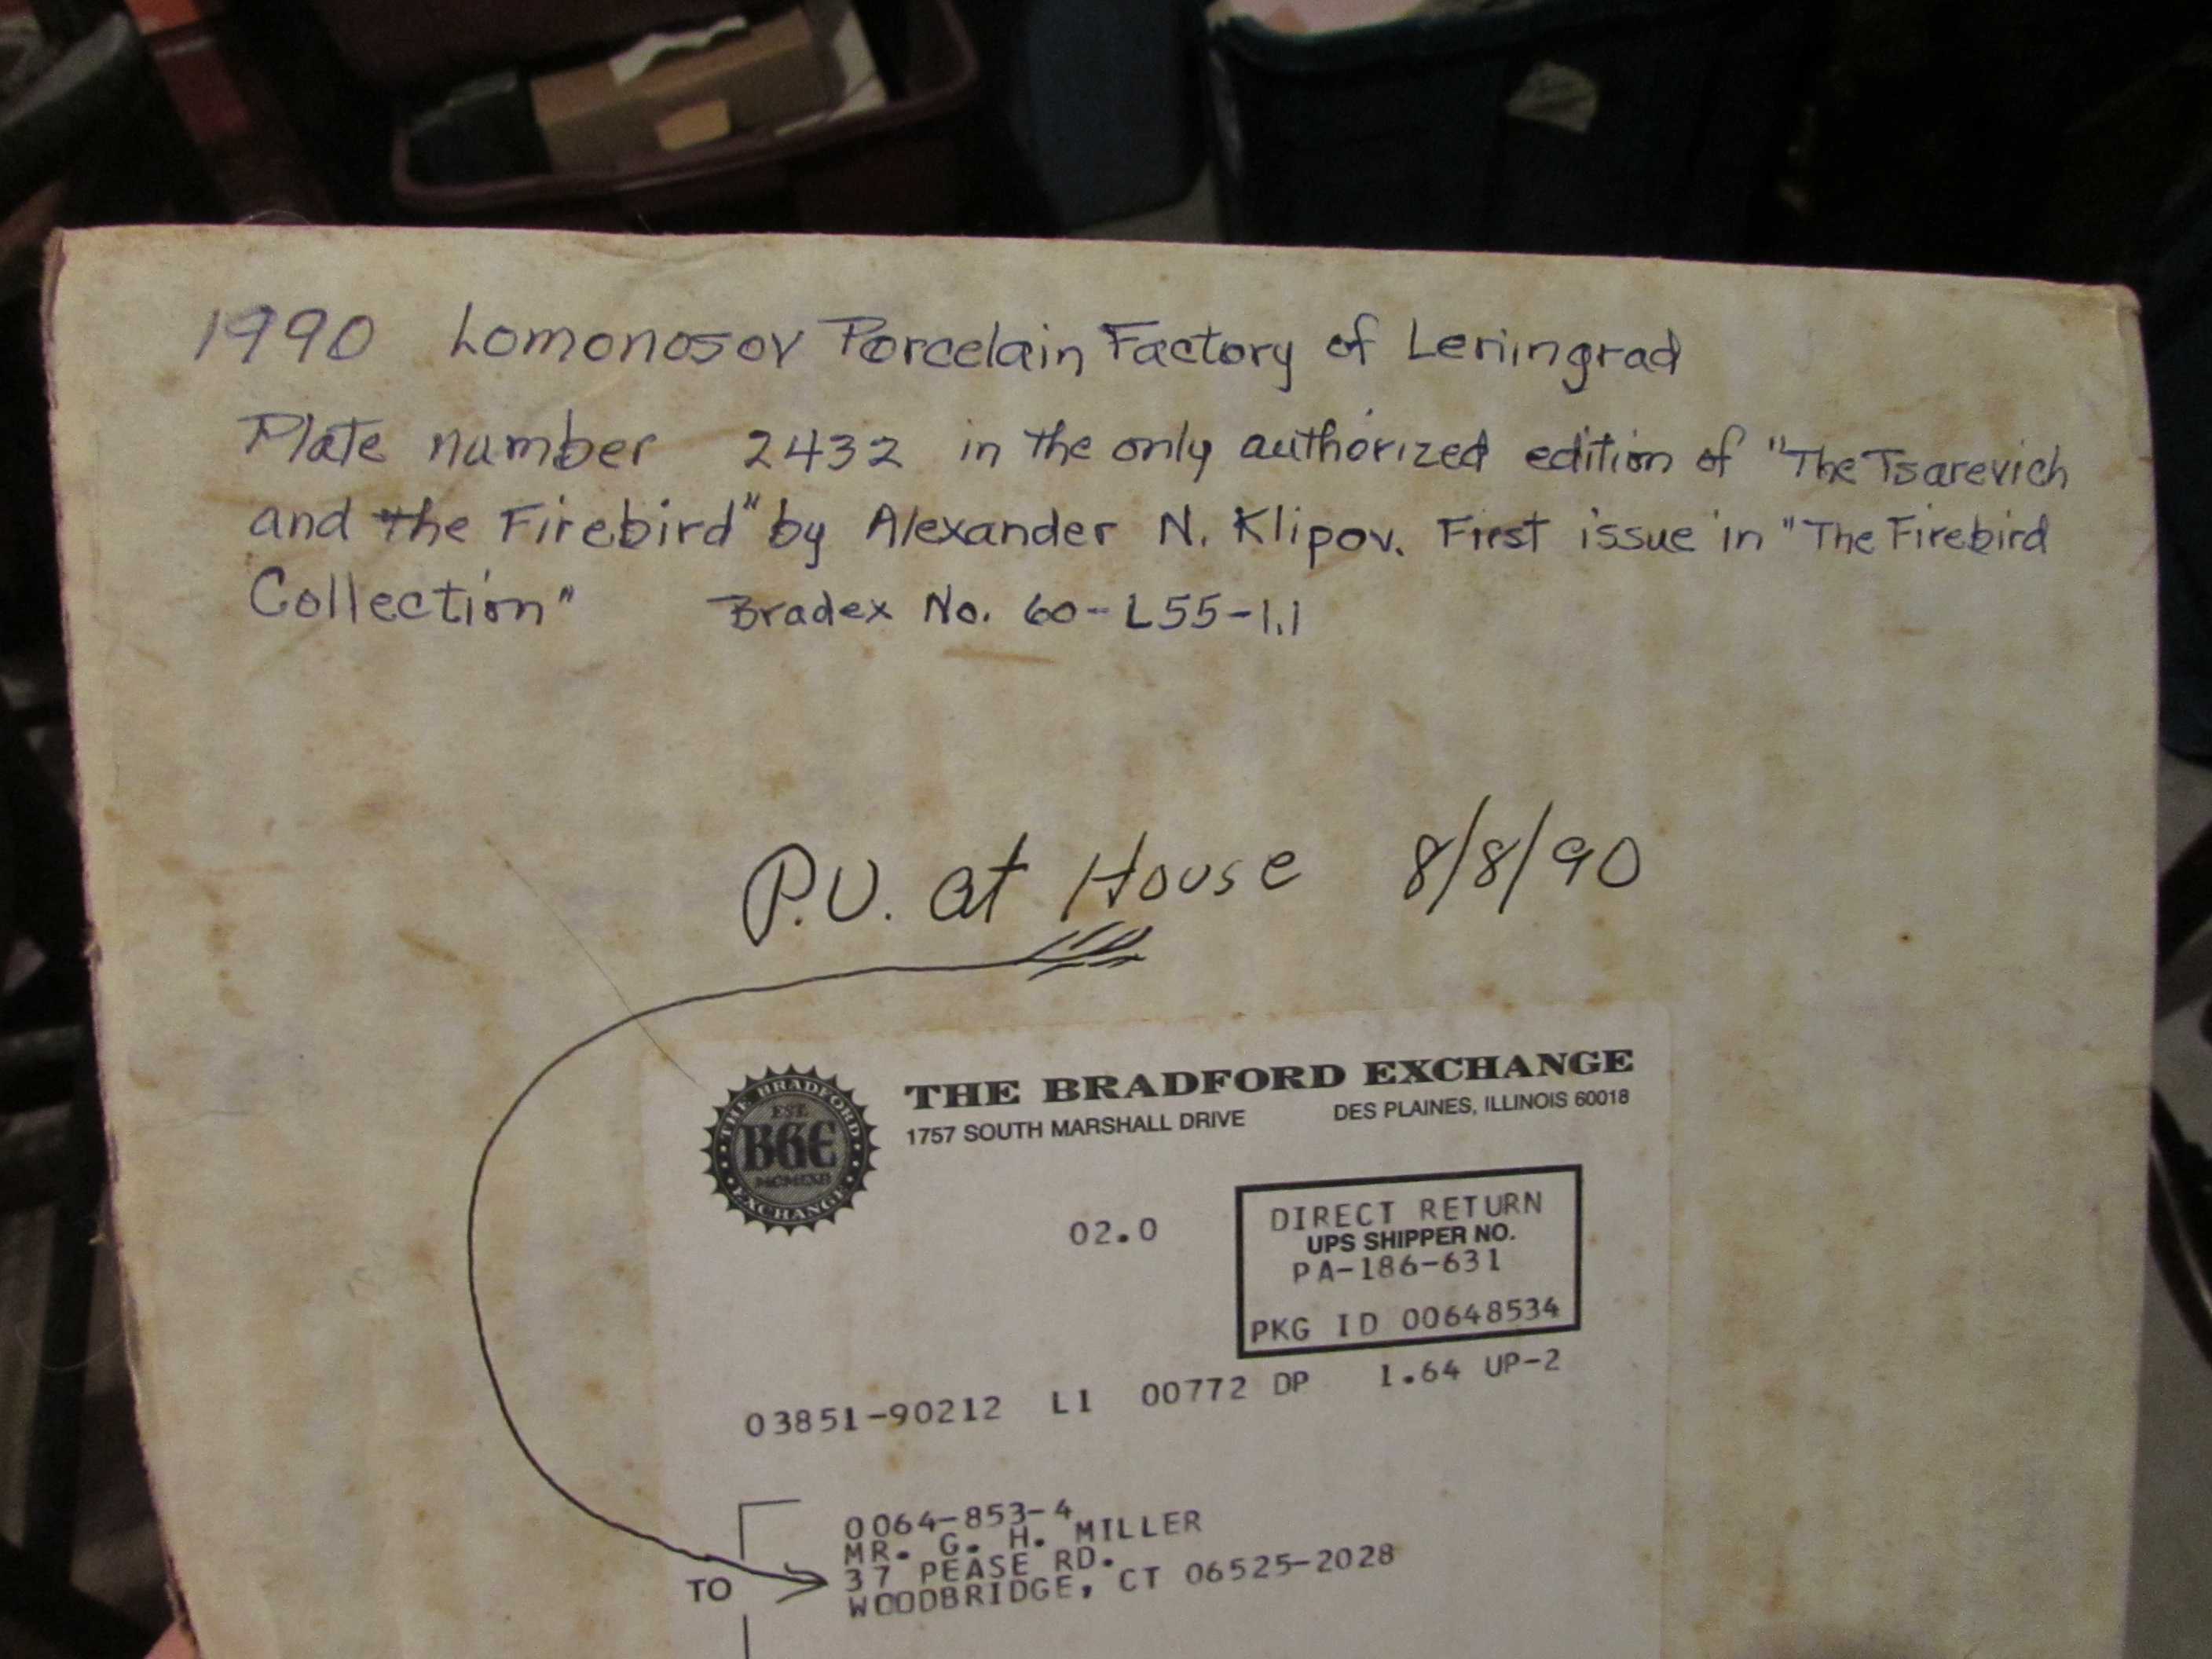 1990 Lomonosov Porcelain Factory of Leningrad
Plate number 2432 in the only authorized edition of "The Tsarevich
and the Firebird" by Alexander N. Klipov. First issue in "The Firebird
Collection" Bradex No. 60-L55-1.1
P.U. at House 8/8/90
THE BRADFORD EXCHANGE
1757 SOUTH MARSHALL DRIVE DES PLAINES, ILLINOIS 60018
THE BRADFORD
EST.
BGE
EXCHANGE
02.0
DIRECT RETURN
UPS SHIPPER NO.
PA-186-631
PKG ID 00648534
03851-90212 L1 00772 DP 1.64 UP-2
0064-853-4
MR. G. H. MILLER
37 PEASE RD.
WOODBRIDGE, CT 06525-2028
TO